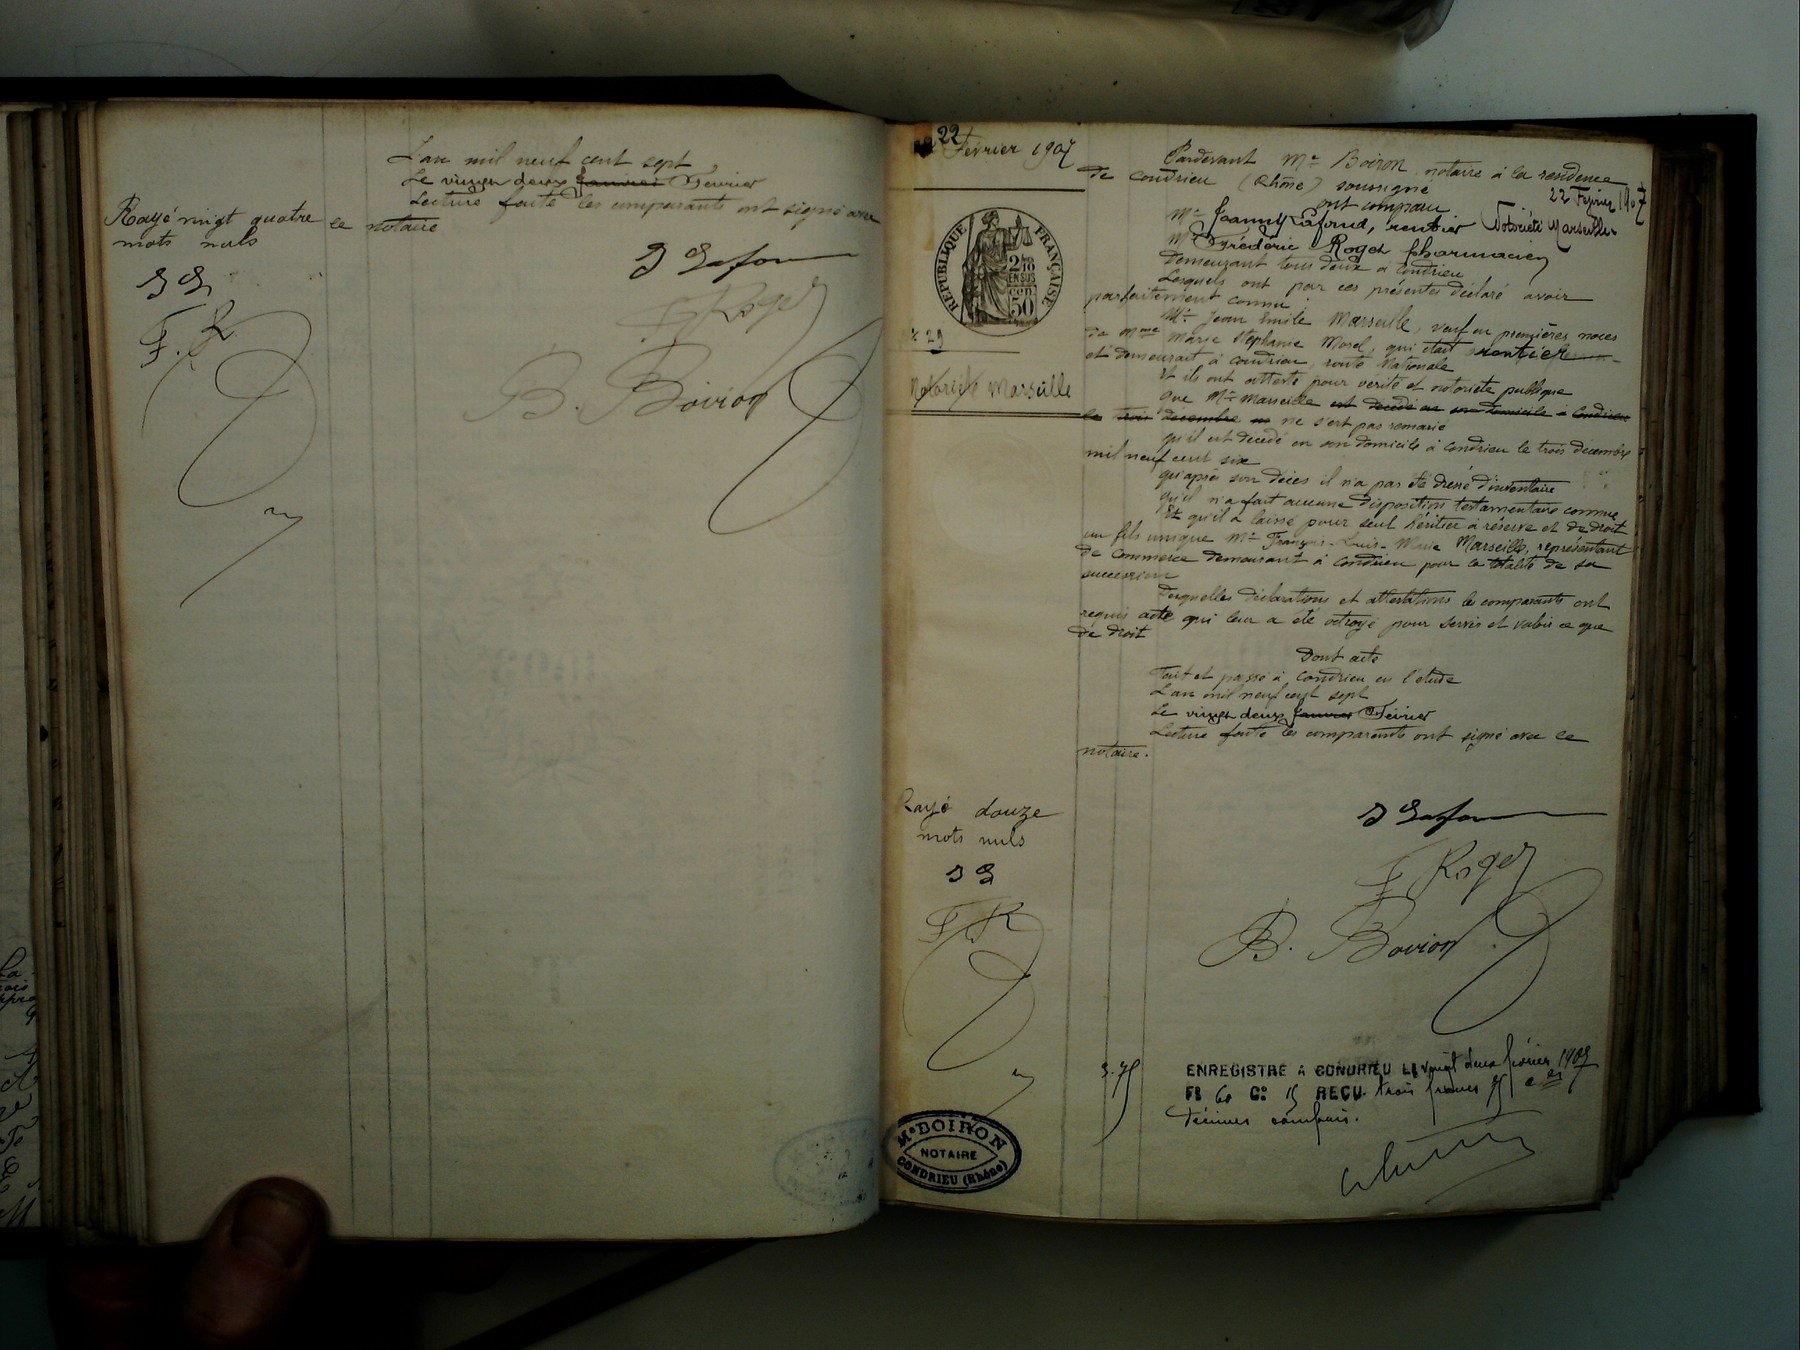 L'an mil neuf cent sept
Le vingt deux janvier Février
Lecture faite les comparants ont signé avec
le notaire
Rayé vingt quatre
mots nuls
F. R
J Lafon
F Roger
B. Boiron
22 Février 1907
RÉPUBLIQUE FRANÇAISE
2/10
EN SUS
50 cen
N° 29
Notoriété Marseille
Pardevant Me Boiron, notaire à la résidence
de Condrieu (Rhône) soussigné
22 Février 1907
ont comparu
Notoriété Marseille
Mr Joanny Lafond, rentier
Mr Frédéric Roger pharmacien
Demeurant tous deux à Condrieu
Lesquels ont par ces présentes déclaré avoir
parfaitement connu :
Mr Jean Emile Marseille, veuf en premières noces
de Mme Marie Stéphanie Morel, qui était rentier
et demeurait à Condrieu, route Nationale
Et ils ont attesté pour vérité et notoriété publique
que Mr Marseille est décédé en son domicile à Condrieu
le trois décembre ne s'est pas remarié
qu'il est décédé en son domicile à Condrieu le trois décembre
mil neuf cent six
qu'après son décès il n'a pas été dressé d'inventaire
qu'il n'a fait aucune disposition testamentaire connue
Et qu'il a laissé pour seul héritier à réserve et de droit
un fils unique Mr François-Louis-Marie Marseille, représentant
de commerce demeurant à Condrieu pour la totalité de sa
succession
Desquelles déclarations et attestations les comparants ont
requis acte qui leur a été octroyé pour servir et valoir ce que
de droit
Dont acte
Fait et passé à Condrieu en l'étude
L'an mil neuf cent sept
Le vingt deux janvier Février
Lecture faite les comparants ont signé avec le
notaire.
Rayé douze
mots nuls
F R
J Lafon
F Roger
B. Boiron
3.75
ENREGISTRÉ A CONDRIEU LE vingt deux février 1907
F° 60 C° 15 REÇU. trois francs 75 ces
décimes compris.
Me BOIRON
NOTAIRE
CONDRIEU (Rhône)